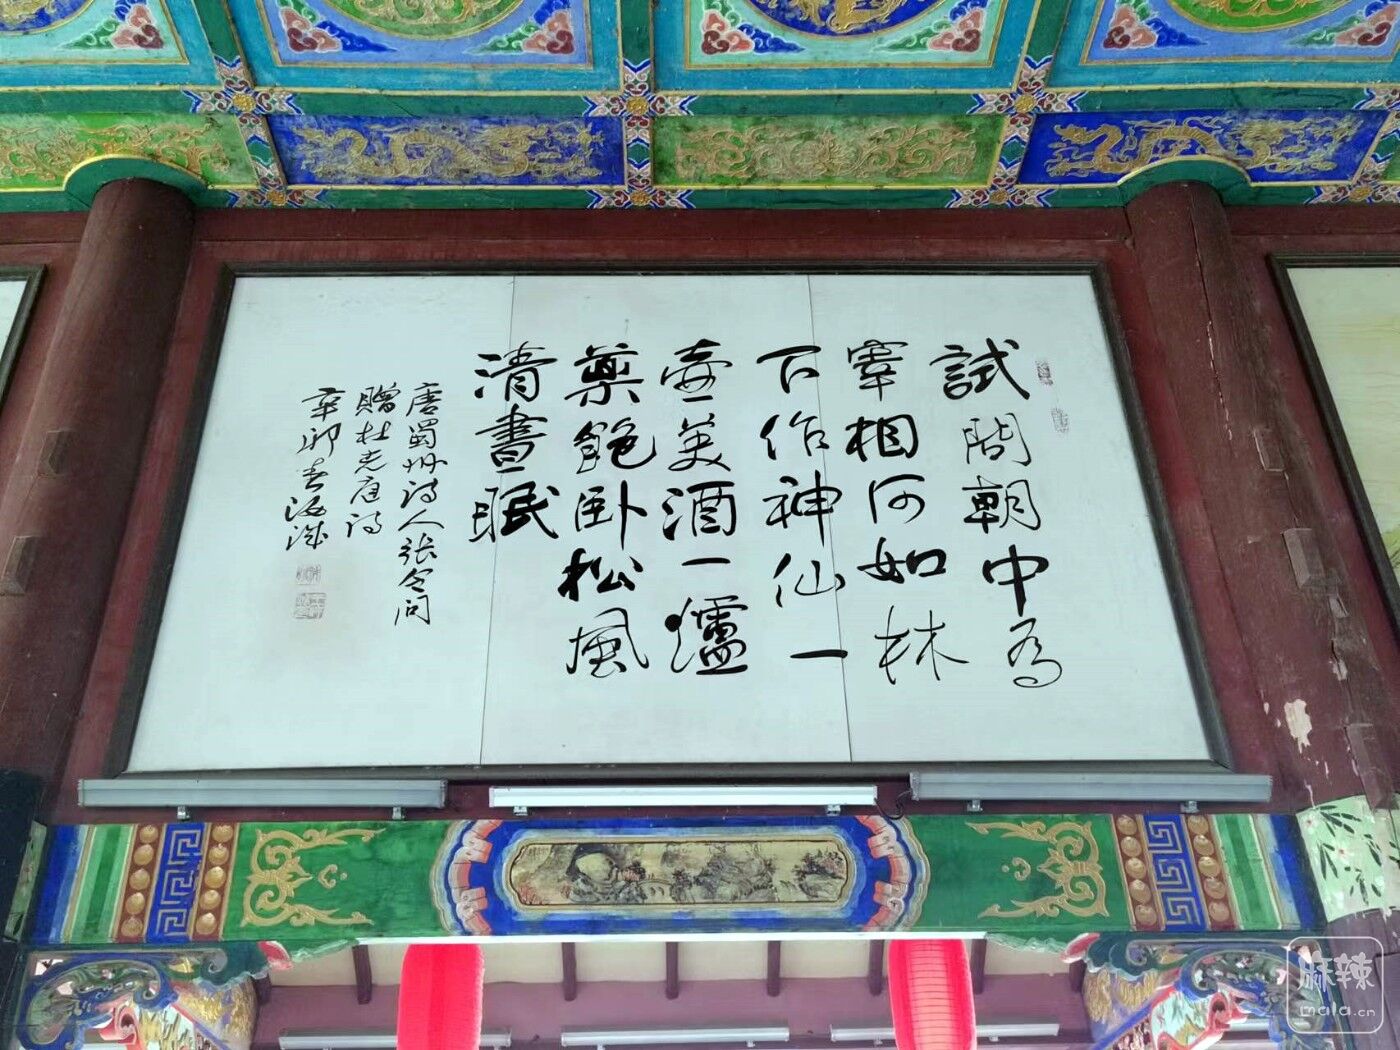 試問朝中為
宰相何如林
下作神仙一
壺美酒一爐
藥飽卧松風
清晝眠
唐蜀州詩人張令问
贈杜光庭詩
辛卯春海洪
麻辣
mala.cn